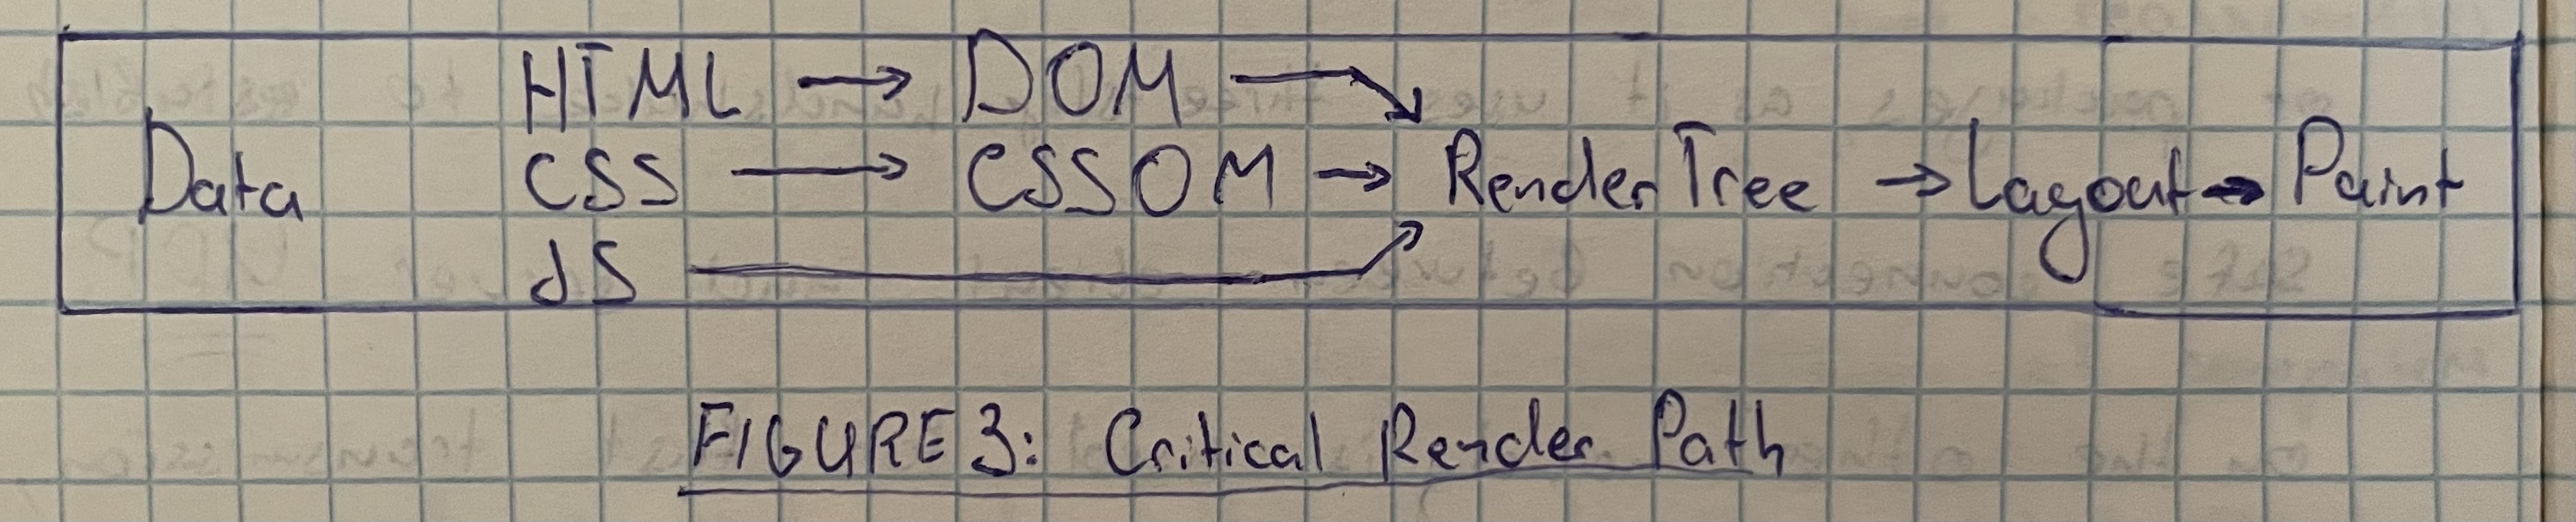 HTML → DOM →
Data CSS → CSSOM → Render Tree → Layout → Paint
JS →
FIGURE 3: Critical Render Path